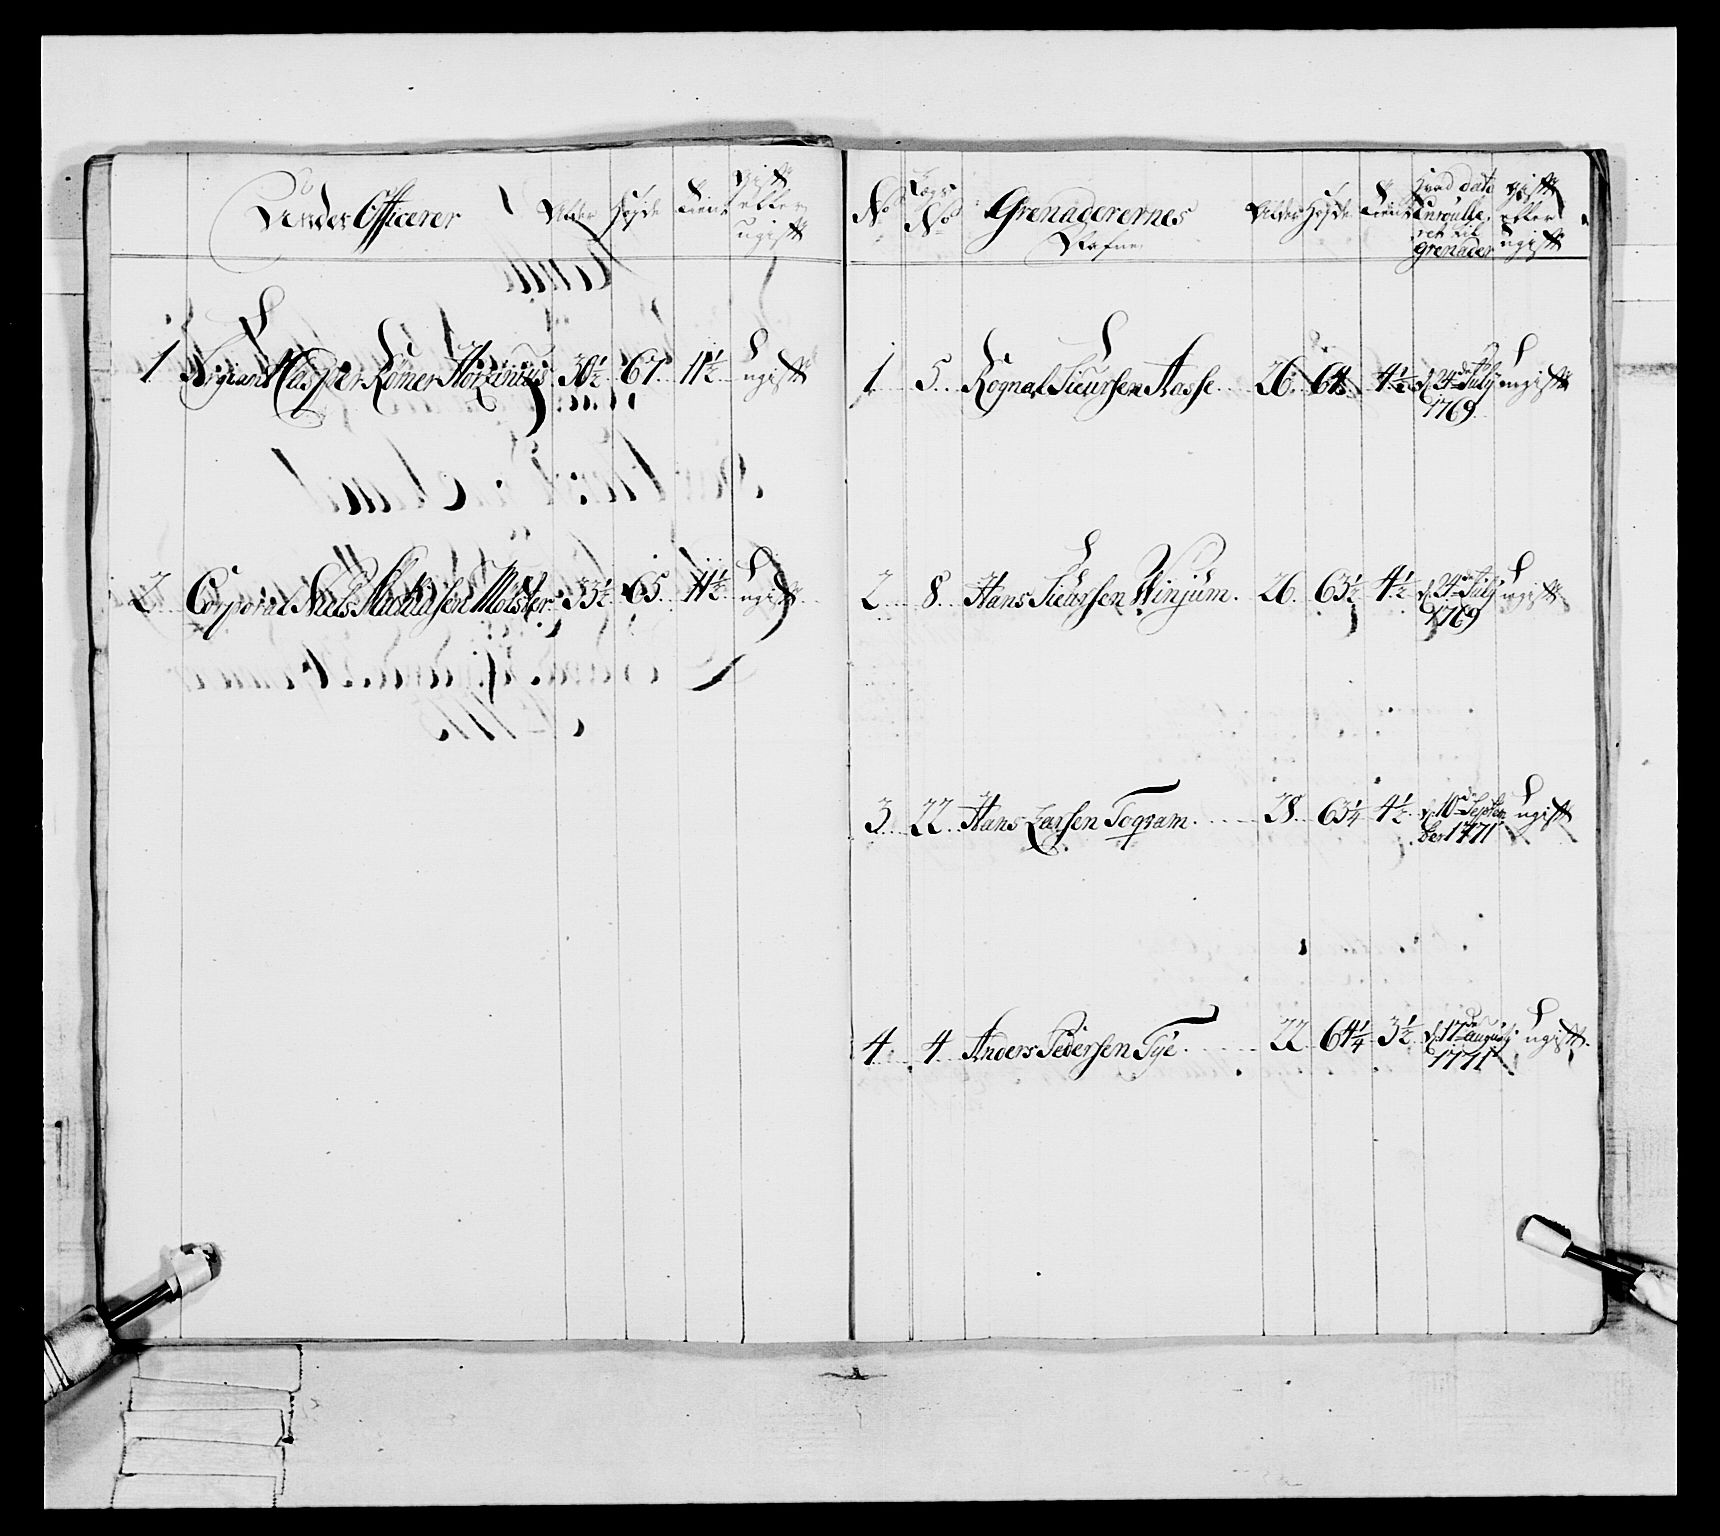 Under Officerer Alder Høyde Tient gift
eller
ugift
1 Sergiant Casper Rømer Horzinius 30½ 67 11½ ugift
2 Corporal Niels Michelsen Mølster 33½ 65 11½ ugift
No Lægs
No Grenaderernes
Nafne Alder Høyde Tient hvad dato
Enroulle-
ret til
grenader gift
eller
ugift
1 5 Rognal Siursen Aasse 26 64 4½ d. 24de July
1769 ugift
2 8 Hans Siursen Winjum 26 63½ 4½ d. 24de July
1769 ugift
3 22 Hans Larsen Togram 28 63¼ 4½ d. 10de Septem
ber 1771 ugift
4 4 Anders Pedersen Tye 22 64¼ 3½ d. 17de augusti
1771 ugift